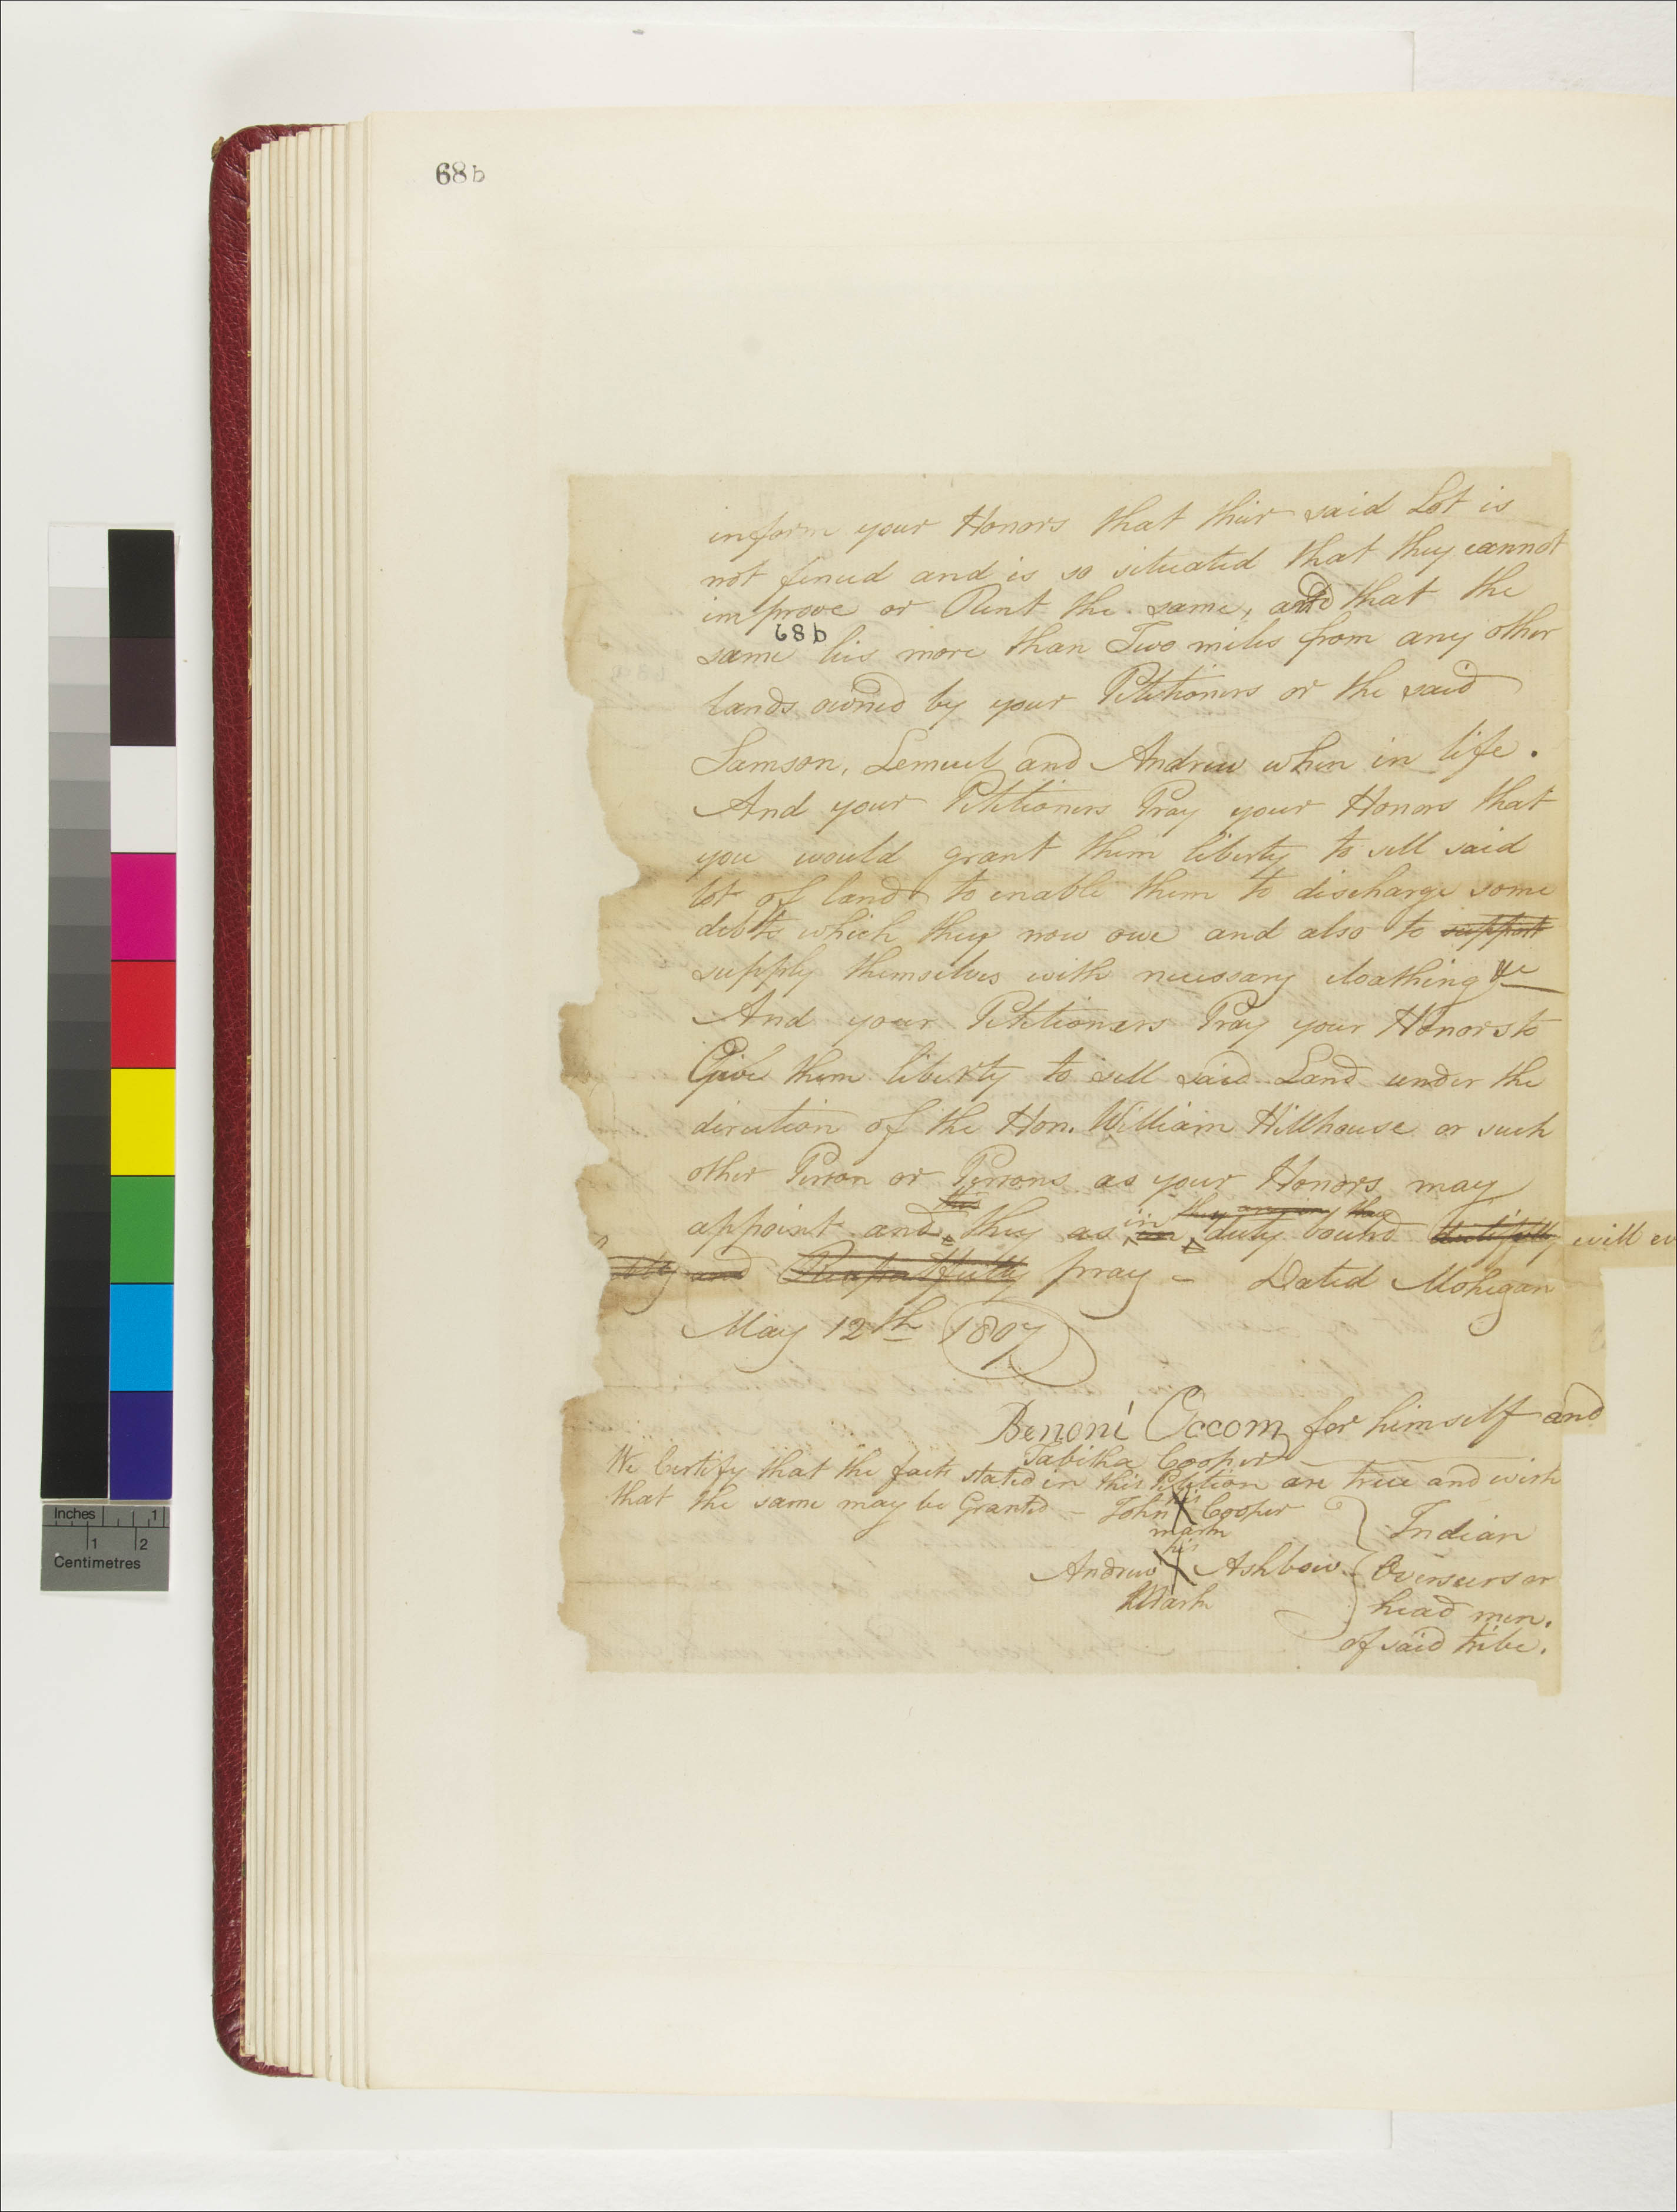 68b
inform your Honors that their said Lot is
not fenced and is so situated that they cannot
improve or Rent the same, and that the
68b
same lies more than Two miles from any other
lands owned by your Petitioners or the said
Samson, Lemuel and Andrew when in life.
And your Petitioners Pray your Honors that
you would grant them liberty to sell said
lot of land to enable them to discharge some
debts which they now owe and also to support
supply themselves with necessary cloathing &c
And your Petitioners Pray your Honors to
Give them liberty to sell said Land under the
direction of the Hon. William Hillhouse or such
other Person or Persons as your Honors may
appoint and they as in duty bound dutifully will ev
and Respectfully pray - Dated Mohegan
May 12th 1807
Benoni Occom for himself and
Tabitha Cooper
We Certify that the facts stated in this Petition are true and wish
that the same may be Granted - John his X mark Cooper
Andrew his X Mark Ashbow
Indian
Overseers or
head men.
of said tribe.
Inches 1
1 2
Centimetres